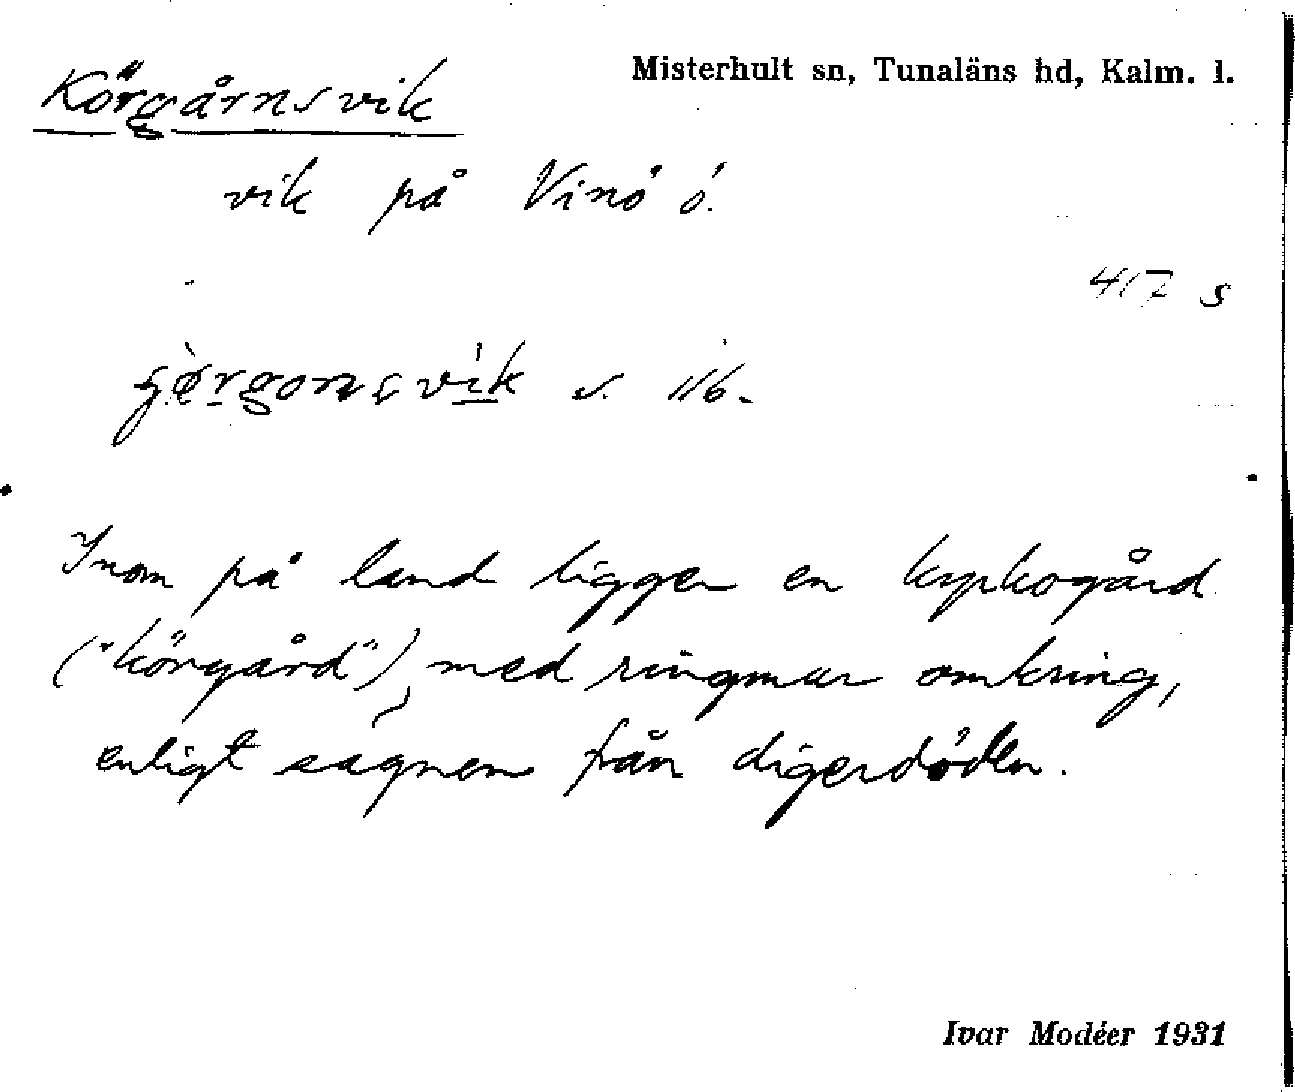 Körgårnsvik
Misterhult sn, Tunaläns hd, Kalm. l.
vik på Vinö ö.
417 s
s. 116.
Inom på land ligger en kyrkogård
("körgård"), med ringmur omkring,
enligt sagnen från digerdöden.
Ivar Modéer 1931